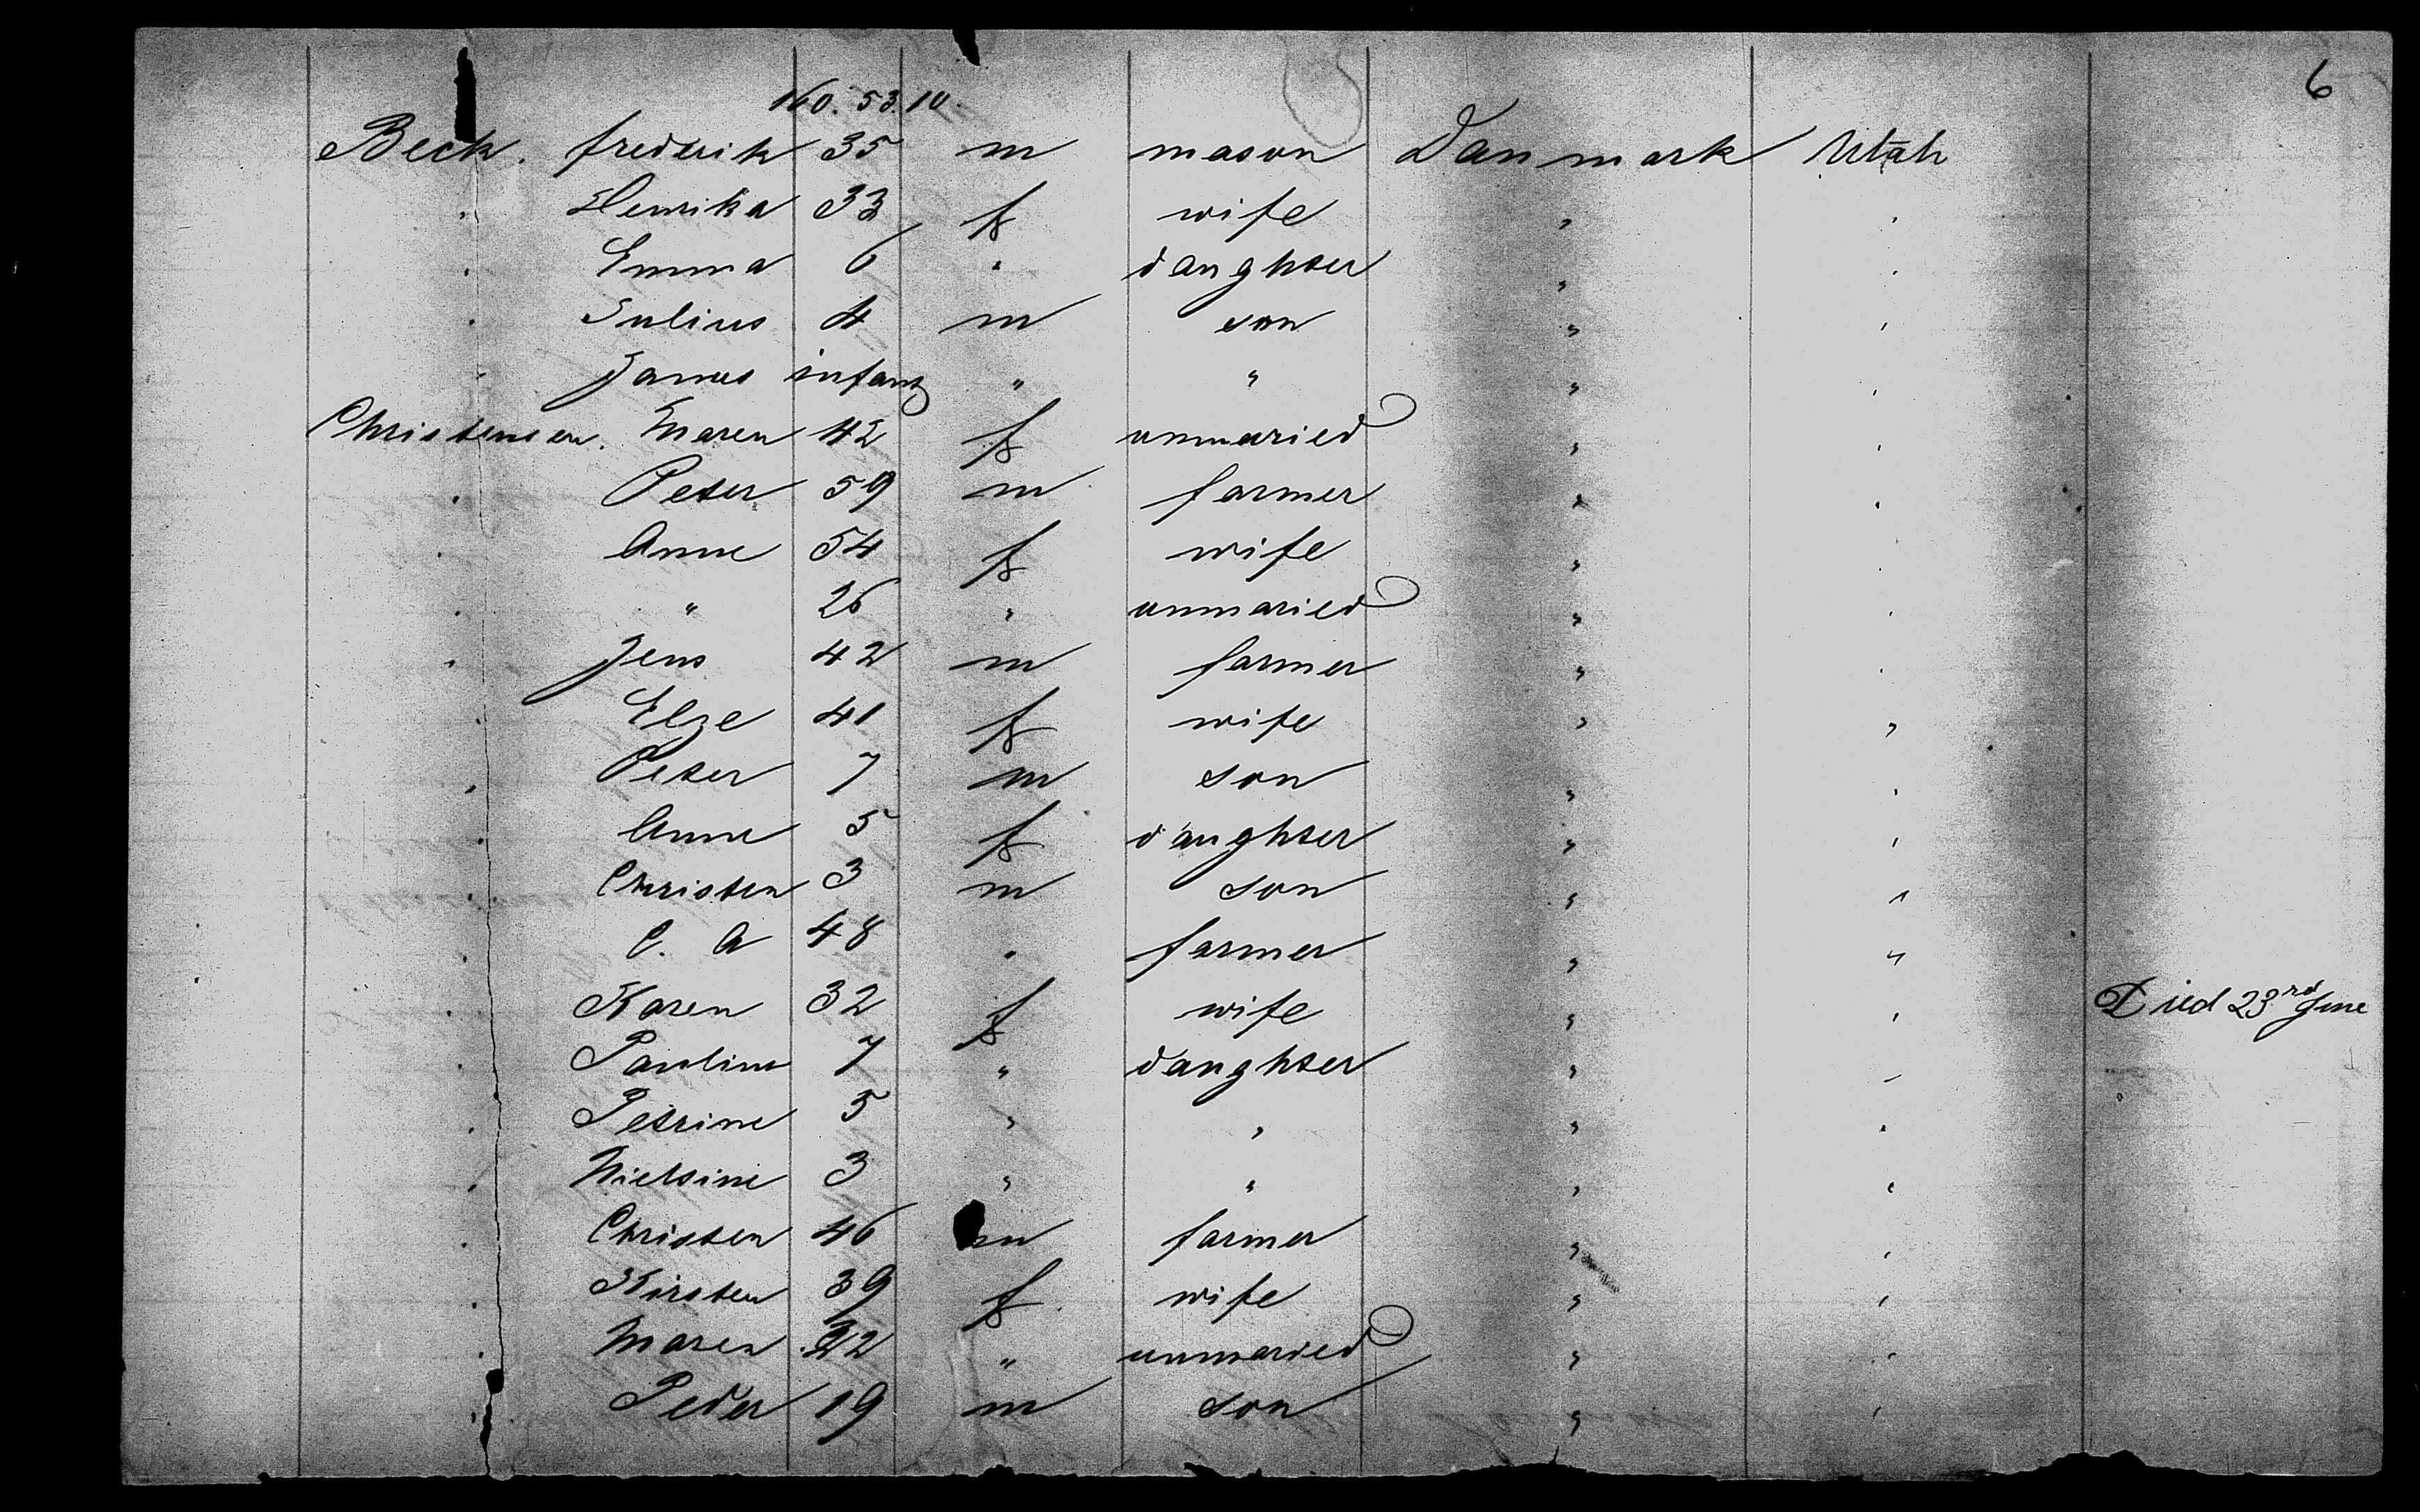 6
160. 53. 10.
Beck. frederik 35 m mason Danmark Utah
" Henrika 33 f wife " "
" Emma 6 " daughter " "
" Julius 4 m son " "
" James infant " " " "
Christensen. Maren 42 f unmaried " "
" Peter 59 m farmer " "
" Anne 54 f wife " "
" " 26 " unmaried " "
" Jens 42 m farmer " "
" Else 41 f wife " "
" Peter 7 m son " "
" Anne 5 f daughter " "
" Christen 3 m son " "
" C. A 48 " farmer " "
" Karen 32 f wife " " Died 23rd June
" Pauline 7 " daughter " "
" Petrine 5 " " " "
" Nielsine 3 " " " "
" Christen 46 m farmer " "
" Kirsten 39 f wife " "
" Maren 22 " unmaried " "
" Peder 19 m son " "